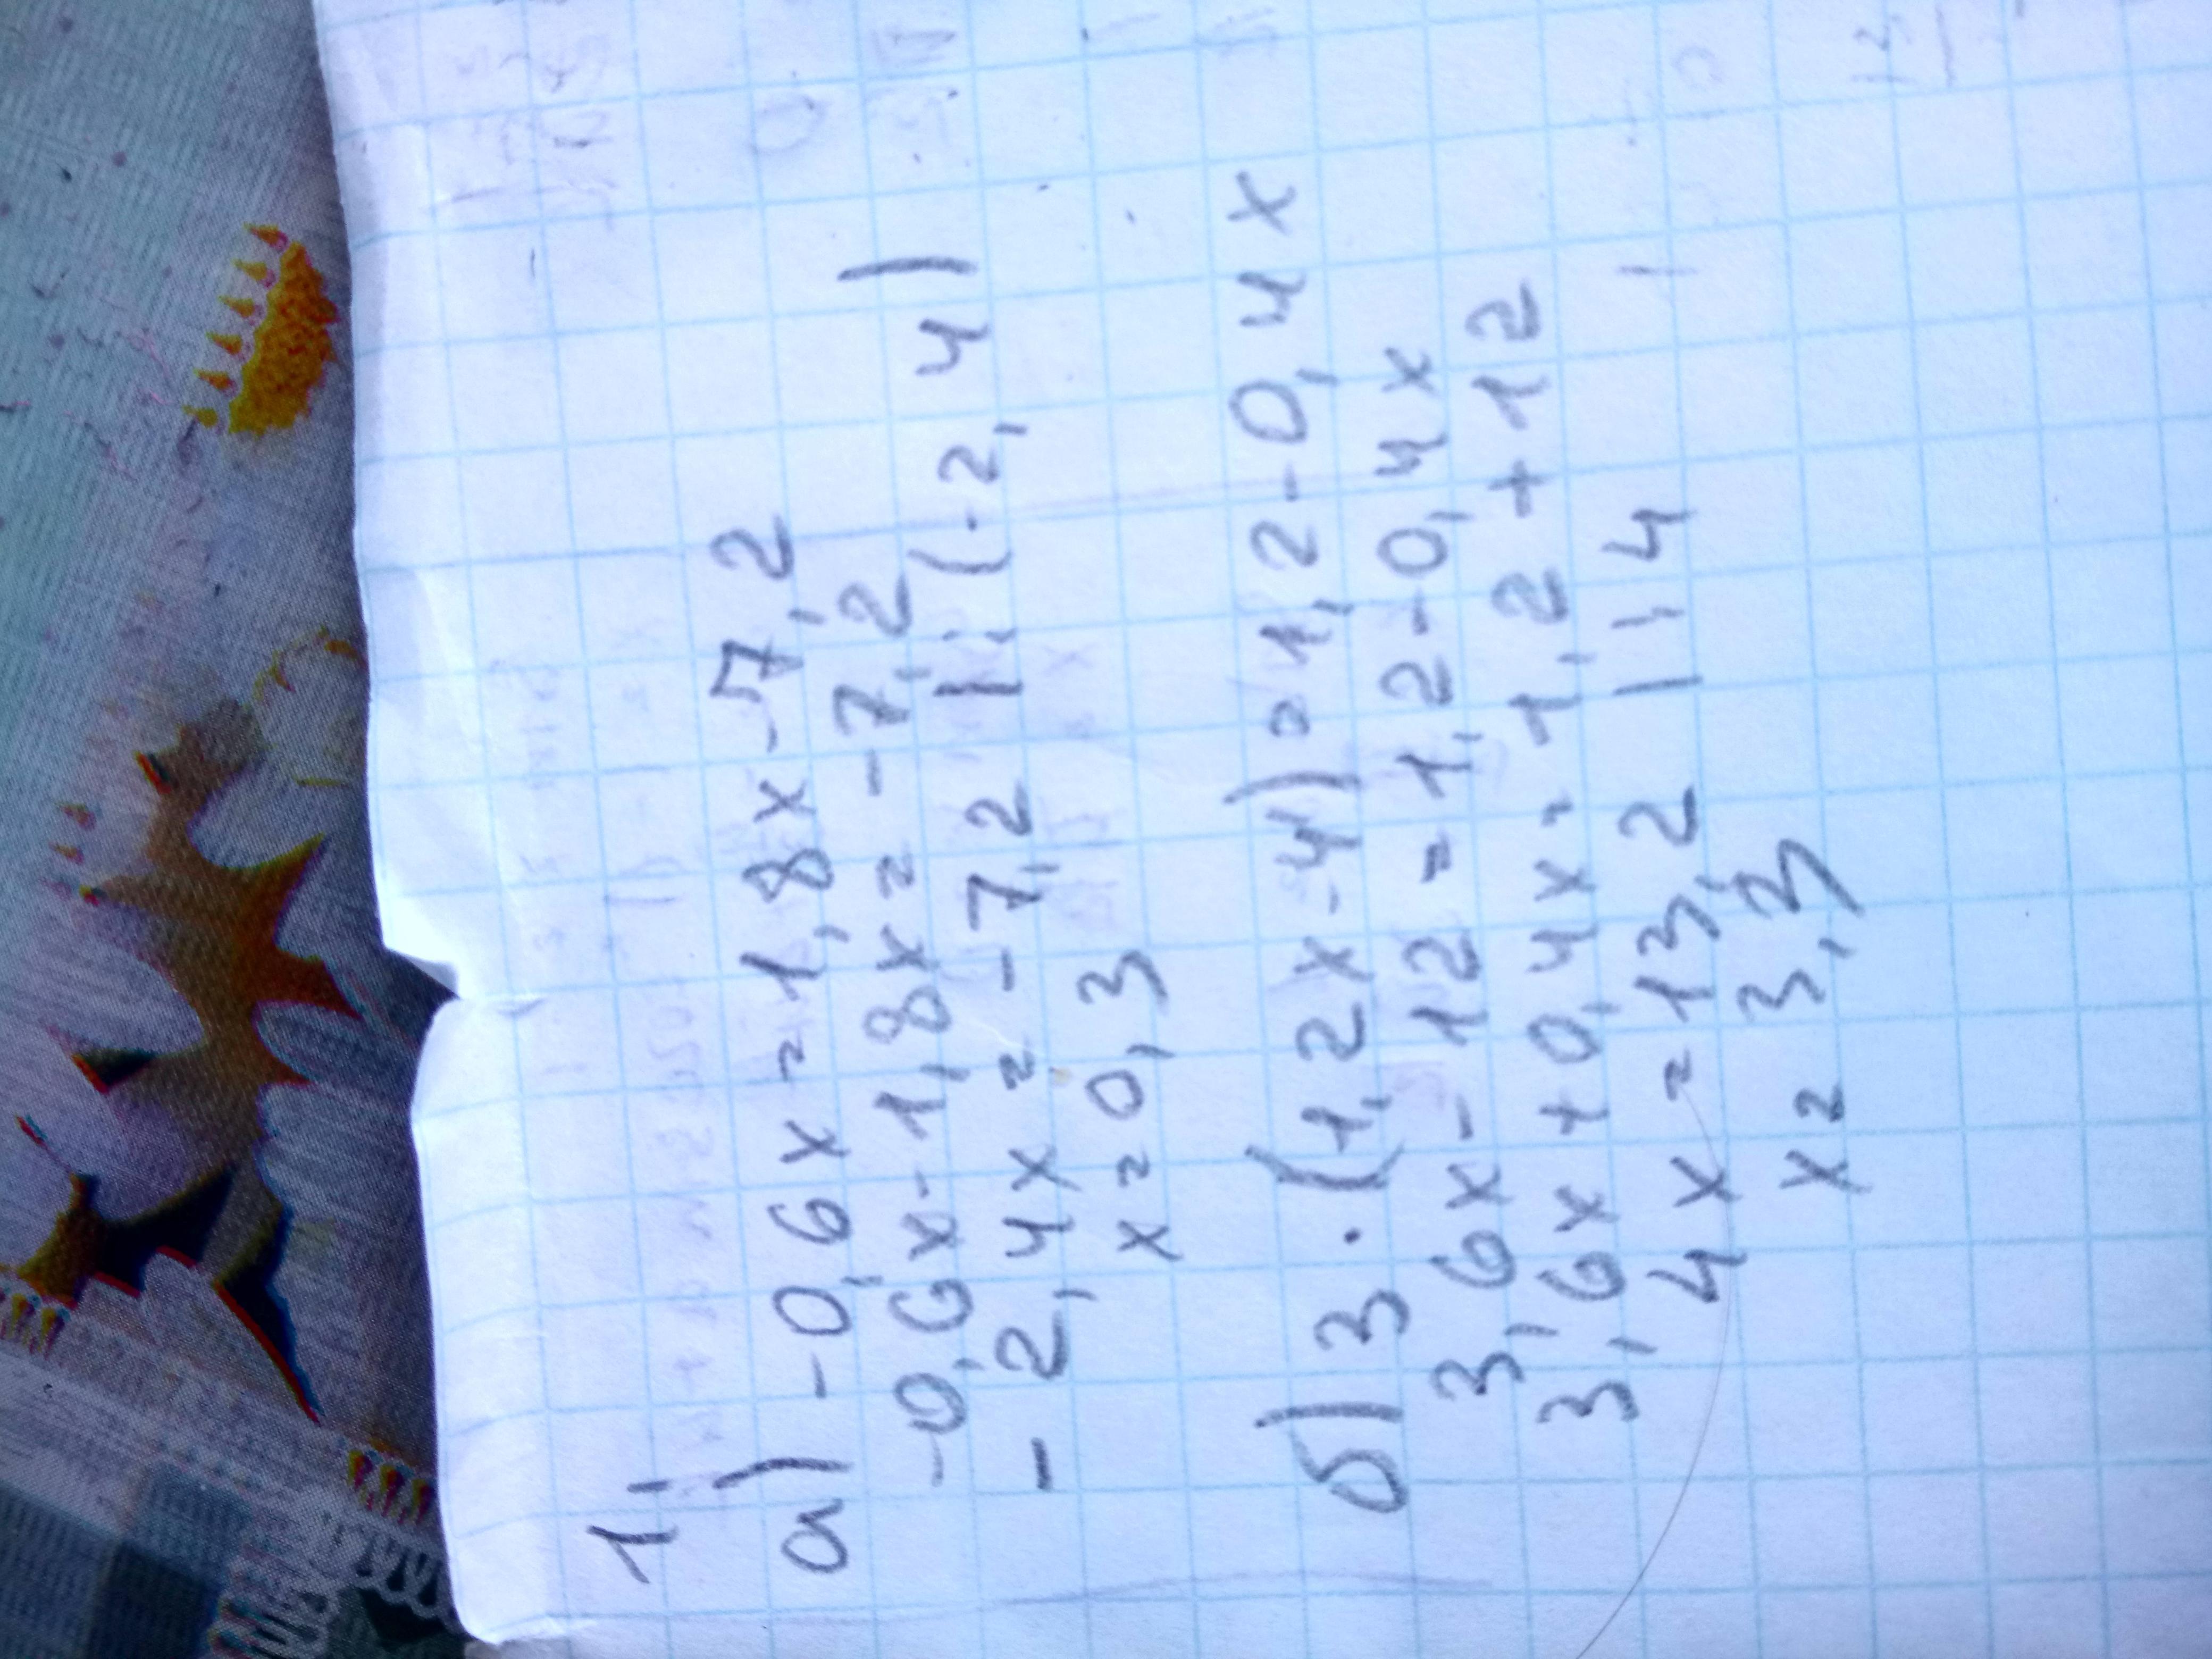 1.
а) -0,6x=1,8x-7,2
-0,6x-1,8x=-7,2
-2,4x=-7,2 |:(-2,4)
x=0,3
б) 3·(1,2x-4)=1,2-0,4x
3,6x-12=1,2-0,4x
3,6x+0,4x=1,2+12
4x=13,2 |:4|
x=3,3